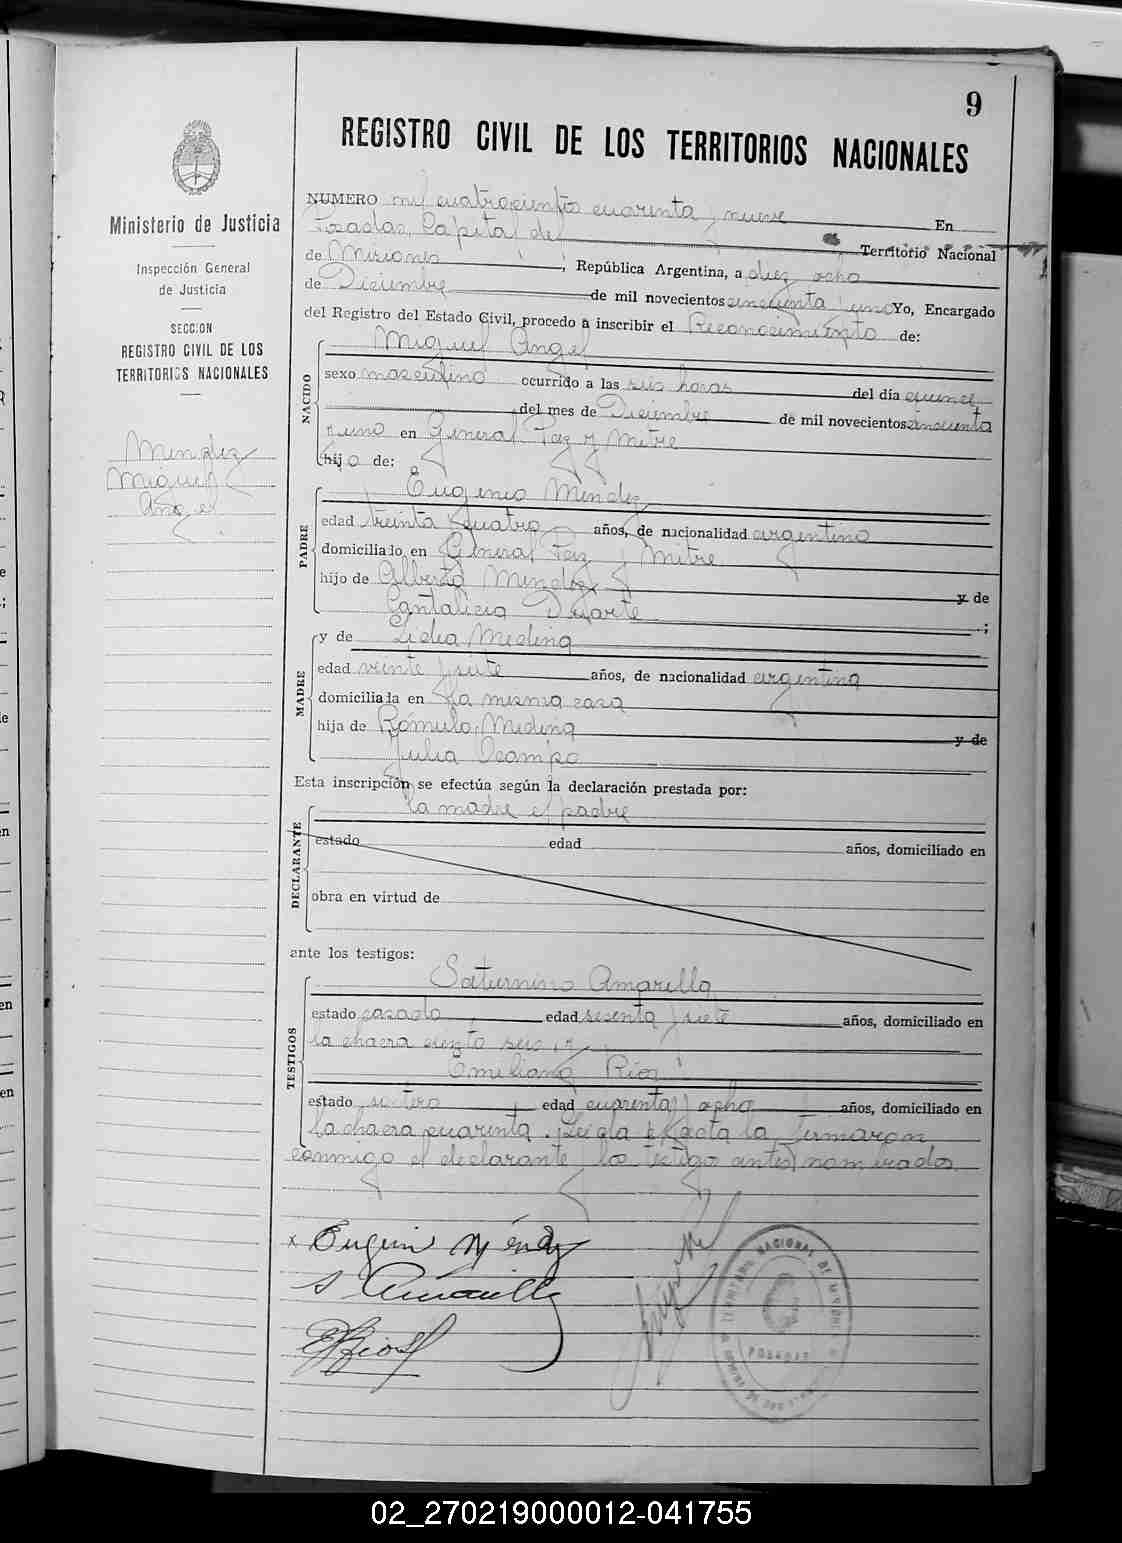 9
REGISTRO CIVIL DE LOS TERRITORIOS NACIONALES
Ministerio de Justicia
Inspección General
de Justicia
SECCION
REGISTRO CIVIL DE LOS
TERRITORIOS NACIONALES
Mendez
Miguel
Angel
NUMERO mil cuatrocientos cuarenta y nueve En
Posadas, Capital del Territorio Nacional
de Misiones, República Argentina, a diez ocho
de Diciembre de mil novecientos cincuenta y uno Yo, Encargado
del Registro del Estado Civil, procedo a inscribir el Reconocimiento de:
NACIDO
Miguel Angel
sexo masculino ocurrido a las seis horas del día quince
del mes de Diciembre de mil novecientos cincuenta
y uno en General Paz y Mitre
hijo de:
PADRE
Eugenio Mendez
edad treinta y cuatro años, de nacionalidad argentino
domiciliado en General Paz y Mitre
hijo de Alberto Mendez y de
Cantalicia Duarte ;
MADRE
y de Lidia Medina
edad veinte y siete años, de nacionalidad argentina
domiciliada en la misma casa
hija de Rómulo Medina y de
Julia Ocampo
Esta inscripción se efectúa según la declaración prestada por:
DECLARANTE
la madre el padre
estado edad años, domiciliado en
obra en virtud de
ante los testigos:
TESTIGOS
Saturnino Amarilla
estado casado edad sesenta y siete años, domiciliado en
la chacra ciento seis y
Emiliano Rios
estado soltero edad cuarenta y ocho años, domiciliado en
la chacra cuarenta. Leida el acta la firmaron
conmigo el declarante y los testigos antes nombrados
x Eugenio Méndez
S Amarilla
E Rios
TERRITORIO NACIONAL DE MISIONES
POSADAS
02_270219000012-041755